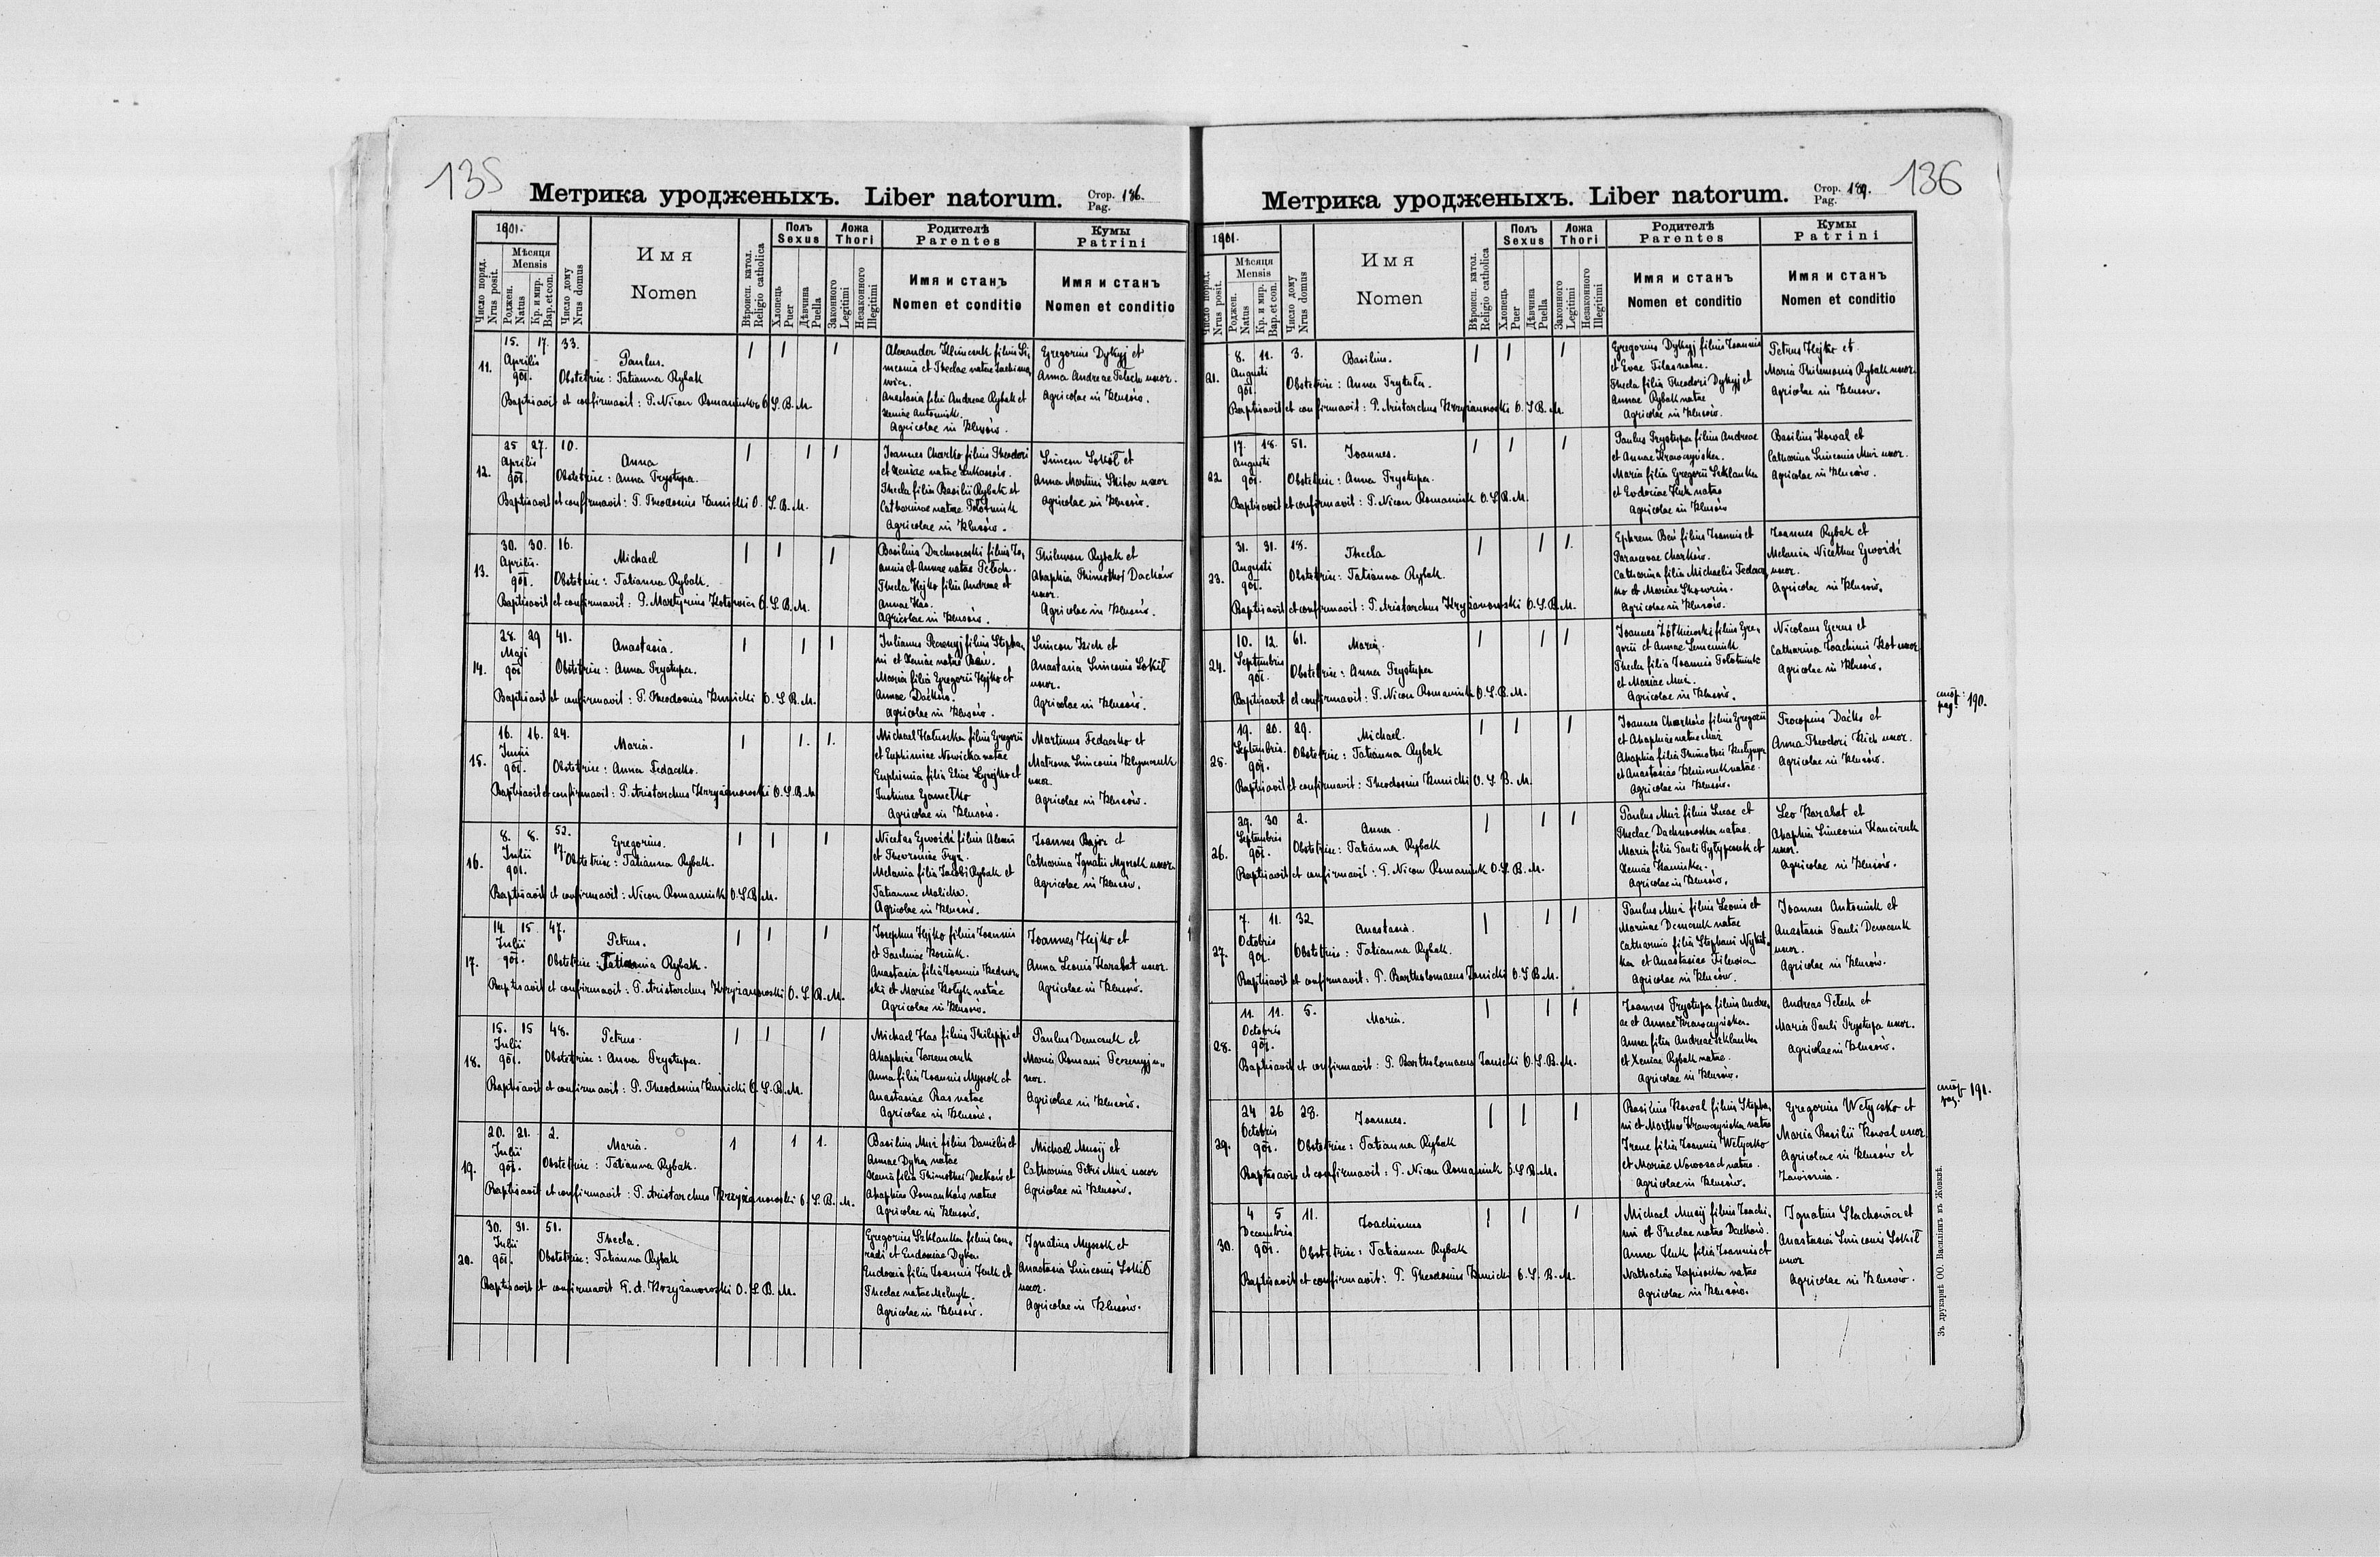 135
Метрика уродженыхъ. Liber natorum. Стор. Pag. 186.
1901.
Число поряд. Nrus posit.
Мѣсяця Mensis
Роджен. Natus
Кр. и мир. Bap. et con.
Число дому Nrus domus
Имя
Nomen
Вѣроисп. катол. Religio catholica
Полъ Sexus
Хлопець Puer
Дѣвчина Puella
Ложа Thori
Законного Legitimi
Незаконного Illegitimi
Родителѣ
Parentes
Имя и станъ
Nomen et conditio
Кумы
Patrini
Имя и станъ
Nomen et conditio
11. 15. 17. Aprilis 901. 33.
Paulus.
Obstetrix: Tatianna Rybak
Baptisavit et confirmavit: P. Nicon Romaniuk O. S. B. M.
1 1 1
Alexander Klimczuk filius Si-
meonis et Theclae natae
Anastasia filia Andreae Rybak et
Xeniae Antoniuk.
Agricolae in Klusów.
Gregorius Dykyj et
Anna Andreae Pełech uxor.
Agricolae in Klusów.
12. 25 27. Aprilis 901. 10.
Anna
Obstetrix: Anna Prystupa.
Baptisavit et confirmavit: P. Theodosius Kunicki O. S. B. M.
1 1 1
Joannes Charko filius Theodori
et Xeniae natae Lukasów.
Thecla filia Basilii Rybak et
Catharinae natae Połotniuk
Agricolae in Klusów.
Simeon Sokił et
Anna Martini Skiba uxor
Agricolae in Klusów.
13. 30. 30. Aprilis. 901. 16.
Michael
Obstetrix: Tatianna Rybak.
Baptisavit et confirmavit: P. Martynius Kotowicz O. S. B. M.
1 1 1
Basilius Dachnowski filius Jo-
annis et Annae natae Pełech.
Thecla Hejko filia Andreae et
Annae Has.
Agricolae in Klusów.
Philemon Rybak et
Ahaphia Thimothei Dacków
uxor.
Agricolae in Klusów.
14. 28. 29 Maji 901 41.
Anastasia.
Obstetrix: Anna Prystupa.
Baptisavit et confirmavit: P. Theodosius Kunicki O. S. B. M.
1 1 1
Julianus filius Stepha-
ni et Xeniae natae
Maria filia Gregorii Hejko et
Annae Daćków.
Agricolae in Klusów.
Simeon Kich et
Anastasia Simeonis Sokił
uxor.
Agricolae in Klusów.
15. 16. 16. Junii 901. 24.
Maria.
Obstetrix: Anna Fedaczko.
Baptisavit et confirmavit: P. Aristarchus Krzyżanowski O. S. B. M.
1 1. 1.
Michael Hałuszka filius Gregorii
et Euphimiae Nowicka natae
Euphimia filia Eliae et
Justinae
Agricolae in Klusów.
Martinus Fedaczko et
Matrona Simeonis Klymczuk
uxor
Agricolae in Klusów.
16. 8. 8. Julii 901. 52. 17.
Gregorius.
Obstetrix: Tatianna Rybak.
Baptisavit et confirmavit: Nicon Romaniuk O. S. B. M.
1 1 1
Nicetas Gwoźdź filius Alexii
et Thevroniae Pryz.
Melania filia Jacobi Rybak et
Tatiannae Malicka.
Agricolae in Klusów.
Joannes Bajor et
Catharina Ignatii Mysok uxor.
Agricolae in Klusów.
17. 14. 15. Julii 901. 47.
Petrus.
Obstetrix: Tatianna Rybak.
Baptisavit et confirmavit: P. Aristarchus Krzyżanowski O. S. B. M.
1 1 1
Josephus Hejko filius Joannis
et Paulinae
Anastasia filia Joannis
ski et Mariae Kotyk natae
Agricolae in Klusów.
Joannes Hejko et
Anna Leonis Karabet uxor.
Agricolae in Klusów.
18. 15. 15 Julii 901. 48.
Petrus.
Obstetrix: Anna Prystupa.
Baptisavit et confirmavit: P. Theodosius Kunicki O. S. B. M.
1 1 1
Michael Has filius Philippi et
Ahaphiae
Anna filia Joannis Mysok et
Anastasiae Ras natae
Agricolae in Klusów.
Paulus Demczuk et
Maria Romani
xor.
Agricolae in Klusów.
19. 20. 21. Julii 901. 2.
Maria.
Obstetrix: Tatianna Rybak.
Baptisavit et confirmavit: P. Aristarchus Krzyżanowski O. S. B. M.
1 1 1.
Basilius Muż filius Danielis et
Annae Dyka natae
Xenia filia Thimothei Daćków et
Ahaphiae Romanków natae
Agricolae in Klusów.
Michael Musij et
Catharina Petri Muż uxor
Agricolae in Klusów.
20. 30. 31. Julii 901. 51.
Thecla.
Obstetrix: Tatianna Rybak
Baptisavit et confirmavit P. A. Krzyżanowski O. S. B. M.
Gregorius Szklanka filius Con-
radi et Eudoxiae Dyka.
Eudoxia filia Joannis Huk et
Theclae natae Melnyk.
Agricolae in Klusów.
Ignatius Mysok et
Anastasia Simeonis Sokił
uxor.
Agricolae in Klusów.
136
Метрика уродженыхъ. Liber natorum. Стор. Pag. 189.
1901.
Число поряд. Nrus posit.
Мѣсяця Mensis
Роджен. Natus
Кр. и мир. Bap. et con.
Число дому Nrus domus
Имя
Nomen
Вѣроисп. катол. Religio catholica
Полъ Sexus
Хлопець Puer
Дѣвчина Puella
Ложа Thori
Законного Legitimi
Незаконного Illegitimi
Родителѣ
Parentes
Имя и станъ
Nomen et conditio
Кумы
Patrini
Имя и станъ
Nomen et conditio
21. 8. 11. Augusti 901. 3.
Basilius.
Obstetrix: Anna Prytuła.
Baptisavit et confirmavit: P. Aristarchus Krzyżanowski O. S. B. M.
1 1 1
Gregorius Dykyj filius Joannis
et Evae Filas natae.
Thecla filia Theodori Dykyj et
Annae Rybak natae
Agricolae in Klusów.
Petrus Hejko et
Maria Philemonis Rybak uxor.
Agricolae in Klusów.
22 17. 18. Augusti 901. 51.
Joannes.
Obstetrix: Anna Prystupa.
Baptisavit et confirmavit: P. Nicon Romaniuk O. S. B. M.
1 1 1
Paulus Prystupa filius Andreae
et Annae Krawczyńska.
Maria filia Gregorii Szklanka
et Evdoxiae Huk natae
Agricolae in Klusów
Basilius Kowal et
Catharina Simeonis Muż uxor.
Agricolae in Klusów.
23. 31. 31. Augusti 901. 18.
Thecla
Obstetrix: Tatianna Rybak.
Baptisavit et confirmavit: P. Aristarchus Kryżanowski O. S. B. M.
1 1 1.
Ephrem Beń filius Joannis et
Parascevae Charków.
Catharina filia Michaelis Fedacz-
ko et Mariae Skowrin.
Agricolae in Klusów.
Joannes Rybak et
Melania Nicethae Gwoździ
uxor.
Agricolae in Klusów.
24. 10. 12. Septembris 901. 61.
Maria.
Obstetrix: Anna Prystupa
Baptisavit et confirmavit: P. Nicon Romaniuk O. S. B. M.
1 1 1
Joannes Żółkiewski filius Gre-
gorii et Annae Semeniuk
Thecla filia Joannis Połotniuk
et Mariae Muż.
Agricolae in Klusów.
Nicolaus Gerus et
Catharina Joachimi Kot uxor
Agricolae in Klusów.
стор. pag. 190.
25. 19. 20. Septembris. 901. 29.
Michael.
Obstetrix: Tatianna Rybak
Baptisavit et confirmavit: Theodosius Kunicki O. S. B. M.
1 1 1
Joannes Charków filius Gregorii
et Ahaphiae natae Muż
Ahaphia filia Thimothei
et Anastasiae Klimczuk natae.
Agricolae in Klusów.
Procopius Daćko et
Anna Theodori Kich uxor.
Agricolae in Klusów.
26. 29. 30 Septembris 901. 2.
Anna.
Obstetrix: Tatianna Rybak
Baptisavit et confirmavit: P. Nicon Romaniuk O. S. B. M.
1 1 1
Paulus Muż filius Lucae et
Theclae Dachnowska natae.
Maria filia Pauli Pyłypczuk et
Xeniae Kaminska.
Agricolae in Klusów.
Leo Karabet et
Ahaphia Simeonis Kanciruk
uxor.
Agricolae in Klusów.
27. 7. 11. Octobris 901. 32
Anastasia.
Obstetrix: Tatianna Rybak.
Baptisavit et confirmavit: P. Bartholomaeus Janicki O. S. B. M.
1 1 1
Paulus Muż filius Leonis et
Marinae Demczuk natae
Catharina filia Stephani Nykit-
ka et Anastasiae Filewicz
Agricolae in Klusów.
Joannes Antoniuk et
Anastasia Pauli Demczuk
uxor.
Agricolae in Klusów.
28. 11. 11. Octobris 901. 5.
Maria.
Baptisavit et confirmavit: P. Bartholomaeus Janicki O. S. B. M.
1 1 1
Joannes Prystupa filius Andre-
ae et Annae Krawczyńska.
Anna filia Andreae Szklanka
et Xeniae Rybak natae.
Agricolae in Klusów.
Andreas Pełech et
Maria Pauli Prystupa uxor.
Agricolae in Klusów.
стор. pag. 191.
29. 24 26 Octobris 901. 28.
Joannes.
Obstetrix: Tatianna Rybak
Baptisavit et confirmavit: P. Nicon Romaniuk O. S. B. M.
1 1 1
Basilius Kowal filius Stepha-
ni et Marthae Krawczyńska natae
Irene filia Joannis Wełyczko
et Mariae Nowosad natae.
Agricolae in Klusów.
Gregorius Wełyczko et
Maria Basilii Kowal uxor.
Agricolae in Klusów et
Zawisznia.
30. 4 5 Decembris 901. 11.
Joachimus
Obstetrix: Tatianna Rybak
Baptisavit et confirmavit: P. Theodosius Kunicki O. S. B. M.
1 1 1
Michael Musij filius Joachi-
mi et Theclae natae Daćków.
Anna Huk filia Joannis et
Nathaliae natae
Agricolae in Klusów.
Ignatius Stachowicz et
Anastasia Simeonis Sokił
uxor
Agricolae in Klusów.
Зъ друкарнѣ ОО. Василіянъ въ Жовквѣ.